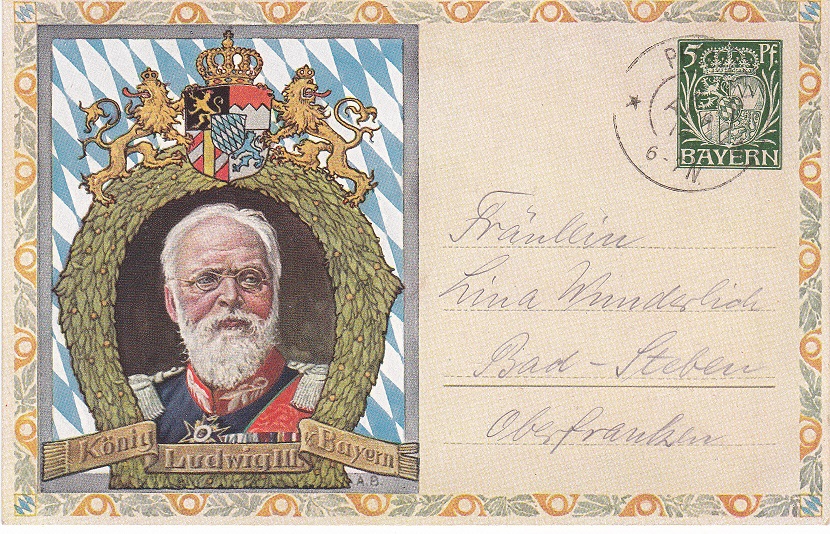 König Ludwig III v. Bayern
A.B.
5 Pf.
BAYERN
Fräulein
Lina Wunderlich
Bad-Steben
Oberfranken